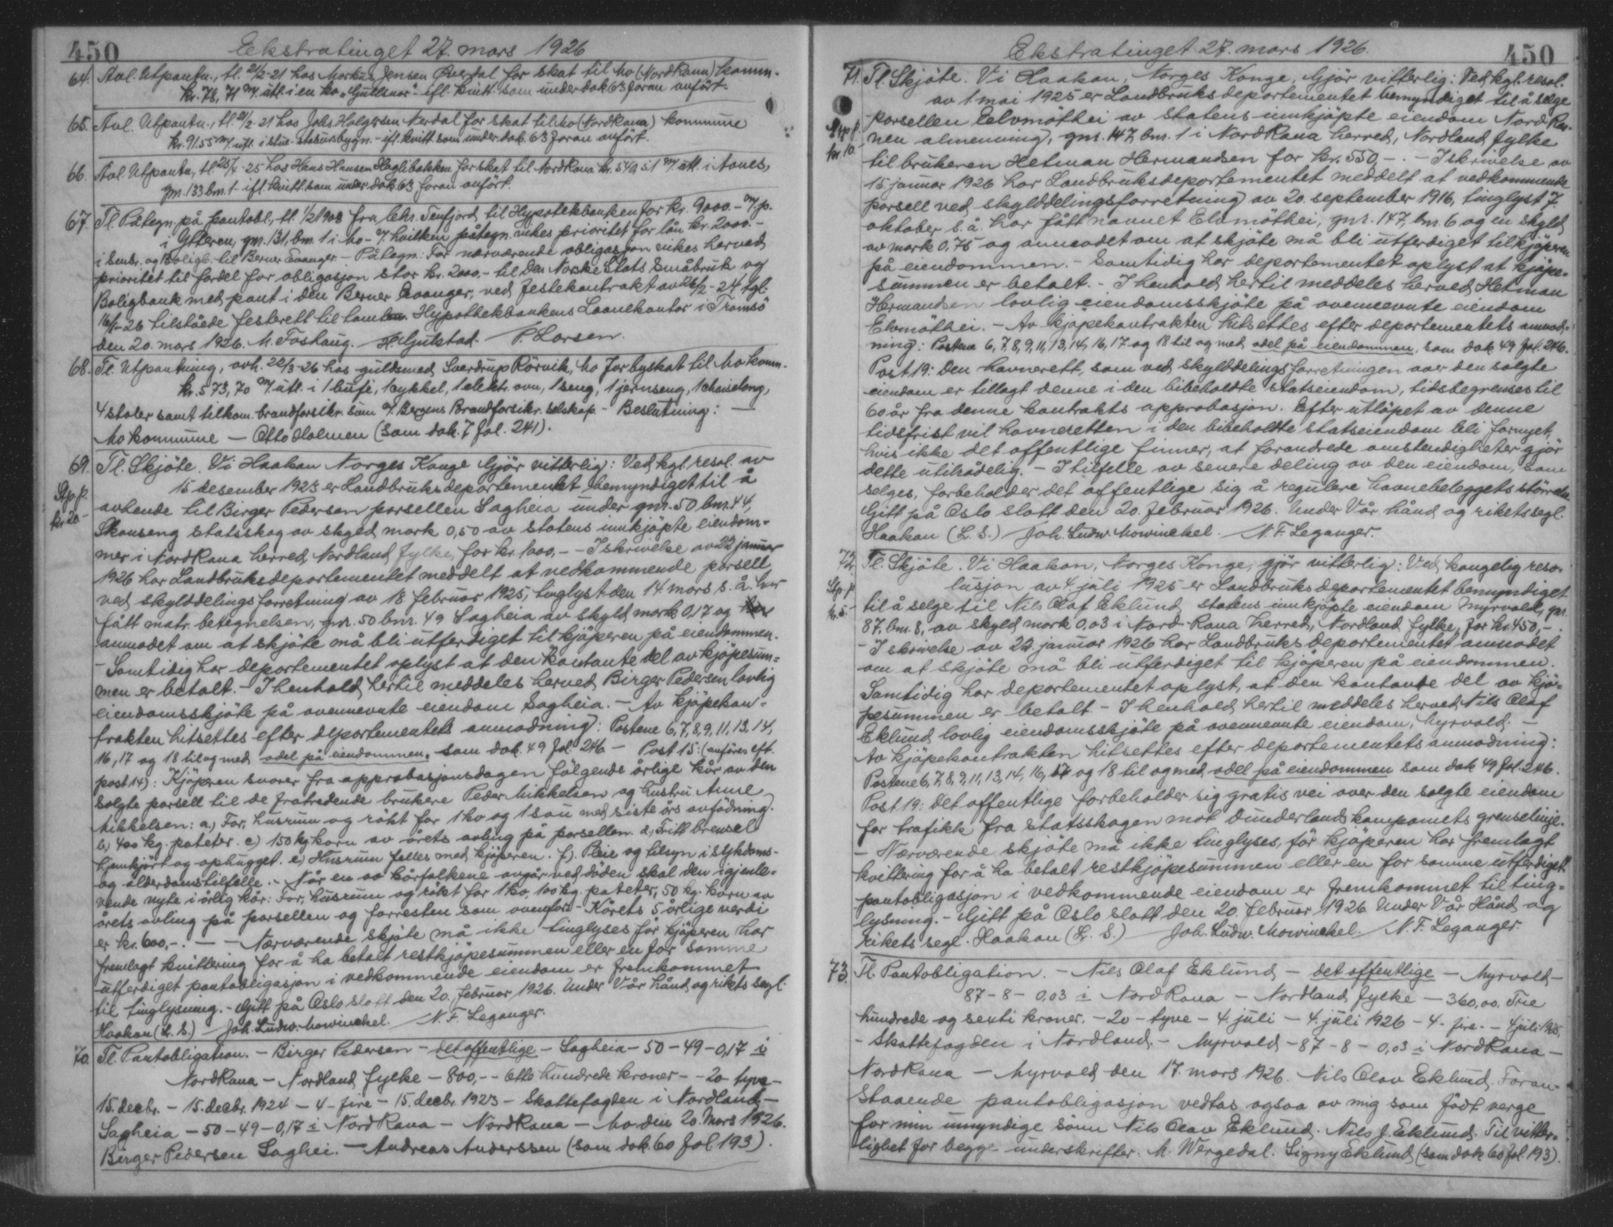 450 Ekstratinget 27. mars 1926
64. Avl. Utpantn., tl. 21/2-21 hos Morten Jensen Överdal for skat til Mo (Nord Rana) komm.
kr. 78,71 m/ utl. i en ko "Gullrosa" ifl. kvitt. som under dok 63 foran anfört.
65. Avl. Utpantn., tl. 21/2-21 hos Johs Holgersen Nerdal for skat til Mo (Nord Rana) kommune
kr. 91.55 m/ utl. i ifl. kvitt som under dok. 63 foran anfört.
66. Avl Utpantn., tl. -25 hos Hans Hansen for skat til Nord Rana kr. m/ utl. i Aanes,
gnr. 133 bnr. 1 ifl kvitt. som under dok 63 foran anfört.
67. Tl. Påtegn. på pantobl., tl. fra Chr. Tenfjord til Hypotekbanken for kr. 9000.- m/ p.
i Ytteren, gnr. 131, bnr. 1 i Mo - m/ hvilken påtegn. vikes prioritet for lån kr. 2000.-
i Småbr. og Boligb. til Berner Svanger. Påtegn. For nærværende obligasjon vikes herved
prioritet til fordel for obligasjon stor kr. 2000.- til Den Norske Stats Småbruk og
Boligbank med pant i den Berner Svanger, ved festekontrakt av 16/2-24 tgl
16/1-26 tilståede festerett til tomten. Hypotekbankens Laanekontor i Tromsö
den 20. mars 1926. M. Foshaug. P. Larsen.
68. Tl. Utpantning, avh. 22/3-26 hos gulksmed Sverdrup Rörvik, Mo for byskat til Mo komm.
kr. 573,70 m/ utl. i 1 bufe, 1 cykkel, 1 elekt. ovn, 1 seng, 1 jernseng, 1 chaiselong,
4 stoler samt tilkom. brandforsikr. sum i Bergens Brandforsikr. selskap. - Beslutning: -
Mo kommune - Otto Holmen (som dok. 7 fol. 241).
69. Tl. Skjöte. Vi Haakon Norges Konge Gjör vitterlig: Ved kgl. resol. av
Stp. p. 15 desember 1923 er Landbruksdepartementet bemyndiget til å
kr. 20- avhende til Birger Pedersen parsellen Sagheia under gnr. 50 bnr. 44,
Skonseng statsskog av skyld mark 0,50 av statens innkjöpte eiendom-
mer i Nord Rana herred, Nordland fylke, for kr. 1000,- - I skrivelse av 22 januar
1926 har Landbruksdepartementet meddelt at vedkommende parsell
ved skylddelingsforretning av 18 februar 1925, tinglyst den 14 mars s. å. har
fått matr. betegnelsen gnr. 50 bnr. 49 Sagheia av skyld mark 0,17 og
anmodet om at skjöte må bli utferdiget til kjöperen på eiendommen.
- Samtidig har departementet oplyst at den kontante del av kjöpesum-
men er betalt. - I henhold hertil meddeles herved Birger Pedersen lovlig
eiendomsskjöte på ovennevnte eiendom Sagheia. - Av kjöpekon-
trakten hitsettes efter departementets anmodning: Postene 6, 7, 8, 9, 11, 13, 14,
16, 17 og 18 til og med odel på eiendommen. som dok 49 fol 246 - Post 15: (anföres eft.
post 14): Kjöperen svarer fra approbasjonsdagen fölgende årlige kår av den
solgte parsell til de fratredende brukere Peder Mikkelsen og hustru Anne
Mikkelsen: a) For, husrum og rökt for 1 ko og 1 sau med siste års avfödning.
b) 400 kg. poteter. c) 150 kg korn av årets avling på parsellen. d) Fritt brensel
hjemkjört og ophugget. e) Husrum felles med kjöperen. f) Pleie og tilsyn i sykdoms-
og alderdomstilfelle. - Når en av kårfolkene avgår ved döden skal den igjenle-
vende nyte i årlig kår: For, husrum og rökt for 1 ko, 100 kg. poteter, 50 kg. korn av
årets avling på parsellen og forresten som ovenfor. - Kårets 5 årlige verdi
er kr. 600,-. - - Nærværende skjöte må ikke tinglyses för kjöperen har
fremlagt kvittering for å ha betalt restkjöpesummen eller en for samme
utferdiget pantobligasjon i vedkommende eiendom er fremkommet
til tinglysning. - Gitt på Oslo slott den 20. februar 1926. Under Vår hånd og rikets segl.
Haakon (L. S.) Joh. Ludw. Mowinckel. N. F. Leganger.
70. Tl. Pantobligation. - Birger Pedersen - det offentlige - Sagheia - 50 - 49 - 0,17 i
Nord Rana - Nordland fylke - 800,- - Otte hundrede kroner - - 20 tyve -
15. decbr. - 15. decbr. 1924 - 4 - fire - 15. decbr. 1923 - Skattefogden i Nordland -
Sagheia - 50 - 49 - 0,17 i Nord Rana - Nord Rana - Mo den 20. Mars 1926.
Birger Pedersen Saghei. - Andreas Anderssen (som dok. 60 fol 193).
Ekstratinget 27. mars 1926. 450
71. Tl. Skjöte. Vi Haakon, Norges Konge, Gjör vitterlig: Ved kgl. resol.
av 1 mai 1925 er Landbruksdepartementet bemyndiget til å selge
Stp. p. parsellen Elvmöthei av statens innkjöpte eiendom Nord Ra-
kr. 10- nen almenning, gnr. 147, bnr. 1 i Nord Rana herred, Nordland fylke
til brukeren Hetman Hermandsen for kr. 550,-. - I skrivelse av
15 januar 1926 har Landbruksdepartementet meddelt at vedkommende
parsell ved skylddelingsforretning av 20. september 1916, tinglyst 7
oktober s. å. har fått navnet Elvmöthei, gnr. 147 bnr 6 og en skyld
av mark 0,75 og anmodet om at skjöte må bli utferdiget til kjöperen
på eiendommen. - Samtidig har departementet oplyst at kjöpe-
summen er betalt. - I henhold hertil meddeles herved Hetman
Hermandsen lovlig eiendomsskjöte på ovennevnte eiendom
Elvmöthei. - Av kjöpekontrakten hitsettes efter departementets anmod-
ning: Postene 6, 7, 8, 9, 11, 13, 14, 16, 17 og 18 til og med, odel på eiendommen, som dok 49 fol. 246.
Post 19: den havnerett, som ved skylddelingsforretningen over den solgte
eiendom er tillagt denne i den bibeholdte statseiendom, tidsbegrenses til
60 år fra denne kontrakts approbasjon. Efter utlöpet av denne
tidsfrist vil havneretten i den bibeholdte statseiendom bli fornyet,
hvis ikke det offentlige finner, at forandrede omstendigheter gjör
dette utilrådelig. - I tilfelle av senere deling av den eiendom, som
selges, forbeholder det offentlige sig å regulere havnebeleggets störrelse
Gitt på Oslo slott den 20. februar 1926. Under Vår hånd og rikets segl.
Haakon (L. S.) Joh. Ludw. Mowinckel. N. F. Leganger.
72. Tl. Skjöte. Vi Haakon, Norges Konge, gjör vitterlig: Ved kongelig reso-
Stp. p. lusjon av 4 juli 1925 er Landbruksdepartementet bemyndiget
kr. 5 til å selge til Nils Olaf Eklund statens innkjöpte eiendom Myrvold, gnr.
87, bnr. 8, av skyld mark 0,03 i Nord Rana herred, Nordland fylke, for kr. 450,-.
- I skrivelse av 22. januar 1926 har Landbruksdepartementet anmodet
om at skjöte må bli utferdiget til kjöperen på eiendommen.
Samtidig har departementet oplyst, at den kontante del av kjö-
pesummen er betalt - I henhold hertil meddeles herved Nils Olaf
Eklund lovlig eiendomsskjöte på ovennevnte eiendom, Myrvold. -
Av kjöpekontrakten hitsettes efter departementets anmodning:
Postene 6, 7, 8, 9, 11, 13, 14, 16, 17 og 18 til og med, odel på eiendommen som dok 49 fol. 246.
Post 19: det offentlige forbeholder sig gratis vei over den solgte eiendom
for trafikk fra statsskogen mot Dunderlandskompaniets grenselinje.
- Nærværende skjöte må ikke tinglyses, för kjöperen har fremlagt
kvittering for å ha betalt restkjöpesummen eller en for samme utferdiget
pantobligasjon i vedkommende eiendom er fremkommet til ting-
lysning. - Gitt på Oslo slott den 20. februar 1926 Under Vår Hånd og
rikets segl. Haakon (L. S.) Joh. Ludw. Mowinckel. N. F. Leganger
73. Tl. Pantobligation. - Nils Olaf Eklund - det offentlige - Myrvold -
87 - 8 - 0,03 i Nord Rana - Nordland fylke - 360,00. Trie
hundrede og sexti kroner. - 20 - tyve - 4 juli - 4. juli 1926 - 4 - fire. - 4 juli 1925
- Skattefogden i Nordland - Myrvold - 87 - 8 - 0,03 i Nord Rana -
Nord Rana - Myrvold den 17. mars 1926. Nils Olav Eklund. Foran-
staaende pantobligasjon vedtas ogsaa av mig som födt verge
for min umyndige sönn Nils Olav Eklund. Nils J. Eklund. Til vitter-
lighet for begge underskrifter. M. Wergedal. Signy Eklund (som dok 60 fol 193).